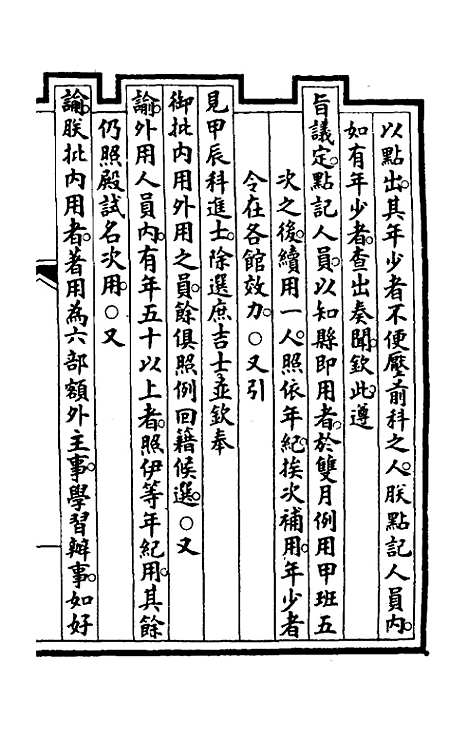 以點出。其年少者不便壓前科之人。朕點記人員內。
如有年少者。查出奏聞。欽此。遵
旨議定。點記人員。以知縣即用者。於雙月例用甲班五
次之後。續用一人。照依年紀。挨次補用。年少者
令在各館效力。○又引
見甲辰科進士。除選庶吉士並欽奉
御批內用外用之員。餘俱照例回籍候選。○又
諭。外用人員內。有年五十以上者。照伊等年紀用。其餘
仍照殿試名次用。○又
諭。朕批內用者。著用為六部額外主事。學習辦事。如好